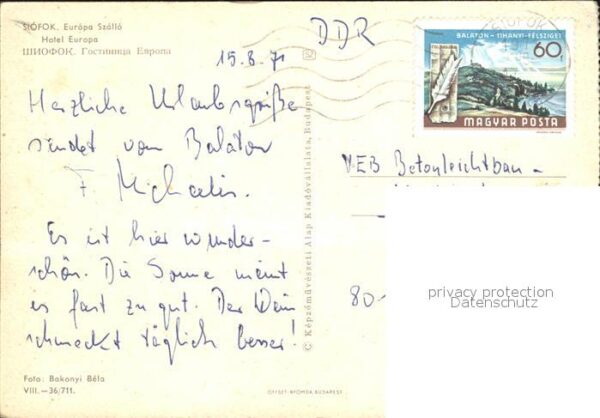 SIÓFOK. Európa Szálló
Hotel Europa
ШИОФОК. Гостиница Европа
DDR
15.8.71
Herzliche Urlaubsgrüße
sendet vom Balaton
F. Michaelis.
Es ist hier wunder-
schön. Die Sonne meint
es fast zu gut. Der Wein
schmeckt täglich besser!
Foto: Bakonyi Béla
VIII.—36/711.
© Képzőművészeti Alap Kiadóvállalata, Budapest
OFFSET-NYOMDA BUDAPEST
SIÓFOK
BALATON - TIHANYI-FÉLSZIGET
60f
MAGYAR POSTA
VEB Betonleichtbau -
80
privacy protection
Datenschutz